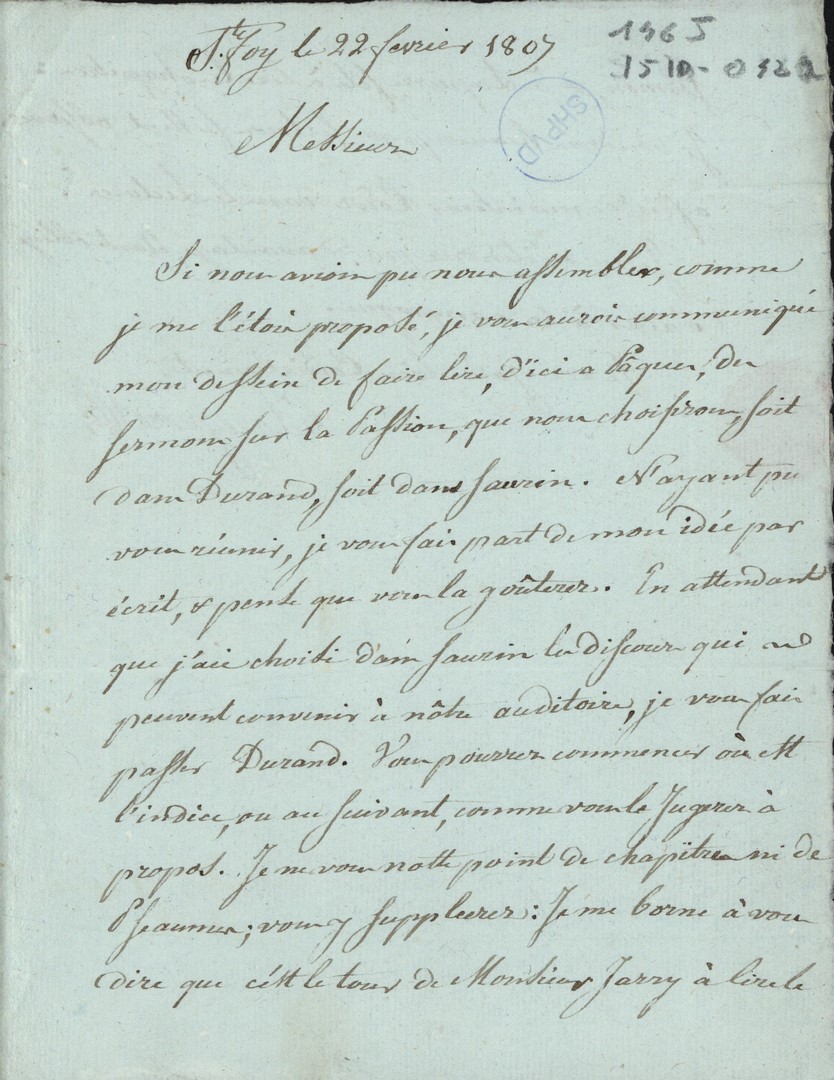 Ste Foy le 22 fevrier 1807
1965
1510-0
SHPVD
Messieurs
Si nous avions pu nous assembler, comme
je me l'étois proposé, je vous aurois communiqué
mon dessein de faire lire, d'ici a Pâques, des
sermons sur la Passion, que nous choisirons, soit
dans Durand, soit dans Saurin. N'ayant pu
vous réunir, je vous fais part de mon idée par
écrit, & pense que vous la goûterez. En attendant
que j'aie choisi dans Saurin les discours qui
peuvent convenir à nôtre auditoire, je vous fais
passer Durand. Vous pourrez commencer où est
l'indice, ou au suivant, comme vous le Jugerez à
propos. Je ne vous notte point de chapitres ni de
Pseaumes; vous y suppleerez: Je me borne à vous
dire que c'est le tour de Monsieur Jarry à lire le